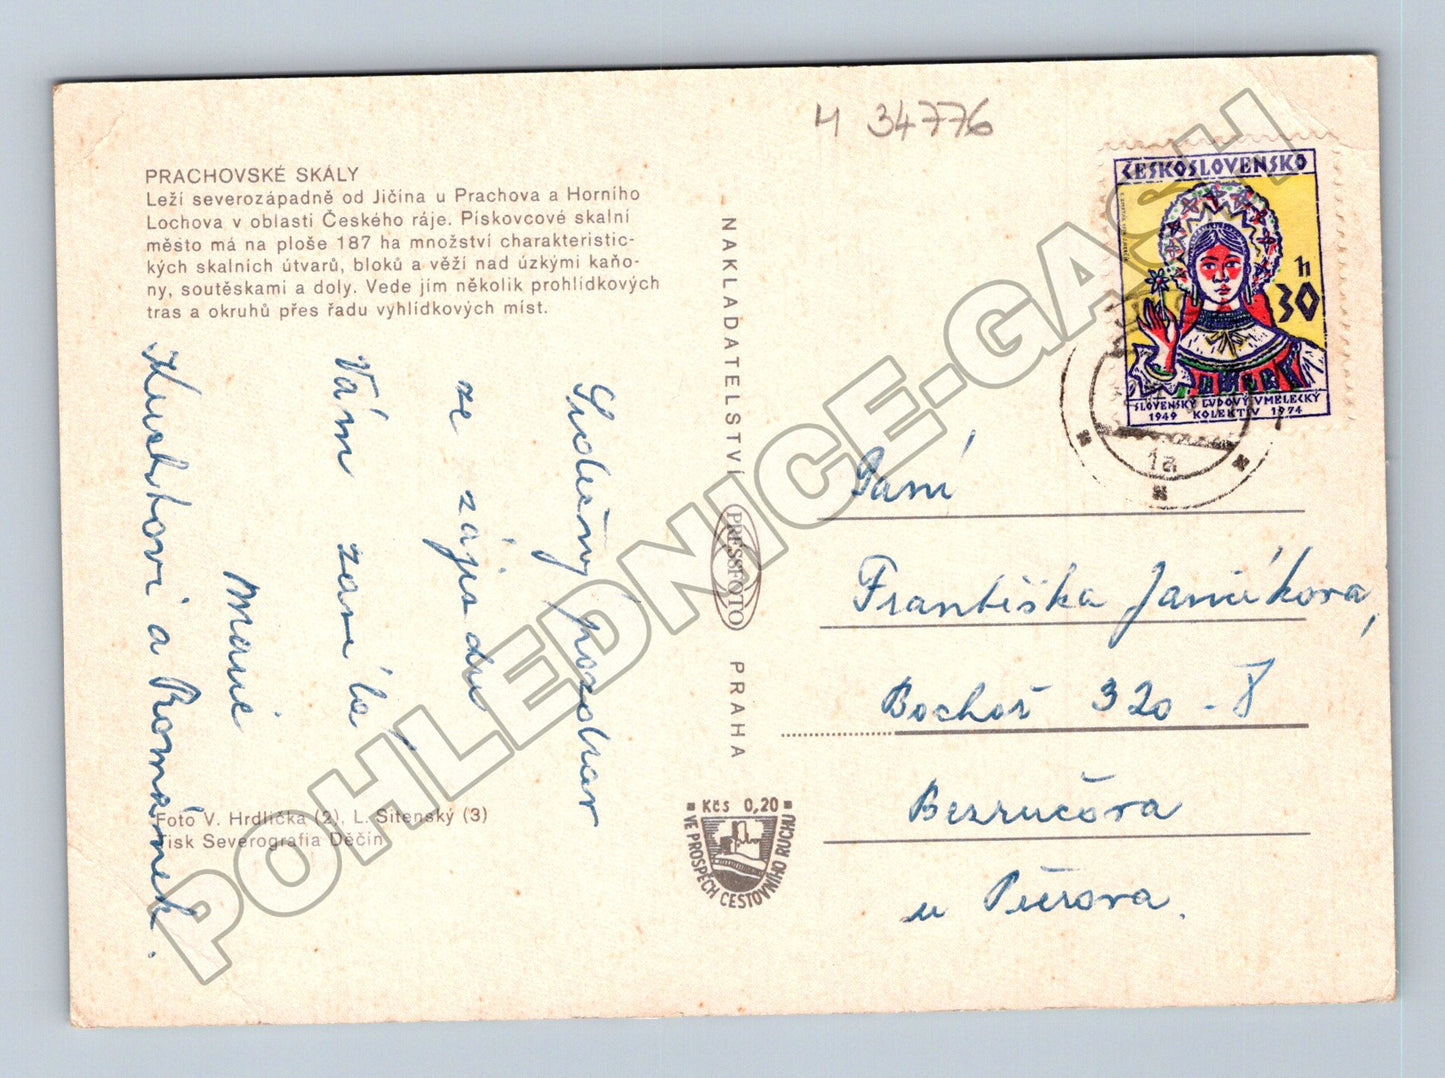 И 34776
PRACHOVSKÉ SKÁLY
Leží severozápadně od Jičína u Prachova a Horního
Lochova v oblasti Českého ráje. Pískovcové skalní
město má na ploše 187 ha množství charakteristic-
kých skalních útvarů, bloků a věží nad úzkými kaňo-
ny, soutěskami a doly. Vede jím několik prohlídkových
tras a okruhů přes řadu vyhlídkových míst.
Srdečný pozdrav
ze zájezdu
Vám zasílá
Marie
a Románek.
Foto V. Hrdlička (2), L. Sitenský (3)
Tisk Severografia Děčín
NAKLADATELSTVÍ
PRESSFOTO
PRAHA
Kčs 0,20
VE PROSPĚCH CESTOVNÍHO RUCHU
ČESKOSLOVENSKO
30 h
SLOVENSKÝ ĽUDOVÝ UMELECKÝ
1949 KOLEKTÍV 1974
1a
Paní
Františka Jančíková,
Bochoř 320 - 8
Bezručova
u Přerova.
POHLEDNICE-GASH